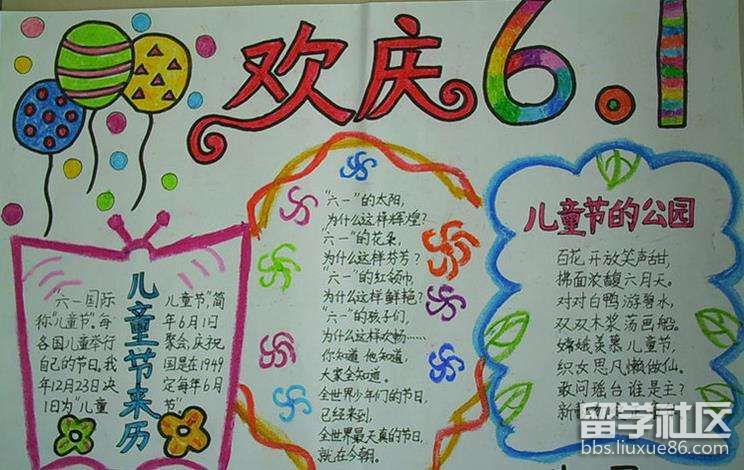 欢庆6.1
儿童节来历
六一国际
称"儿童节"。每
各国儿童举行
自己的节日。我
年12月23日决
1日为"儿童
儿童节",简
年6月1日
聚会,庆祝
国是在1949
定每年6月
节"。
"六一"的太阳,
为什么这样辉煌?
六一"的花朵,
为什么这样芬芳?
"六一"的红领巾
为什么这样鲜艳?
"六一"的孩子们,
为什么这样欢畅……
你知道 他知道,
大家全知道。
全世界少年们的节日,
已经来到,
全世界最天真的节日,
就在今朝。
儿童节的公园
百花开放笑声甜,
拂面浓馥六月天。
对对白鸭游碧水,
双双木桨荡画船。
嫦娥羡慕儿童节,
织女思凡懒做仙。
敢问瑶台谁是主?
新
留学社区
bbs.liuxue86.com